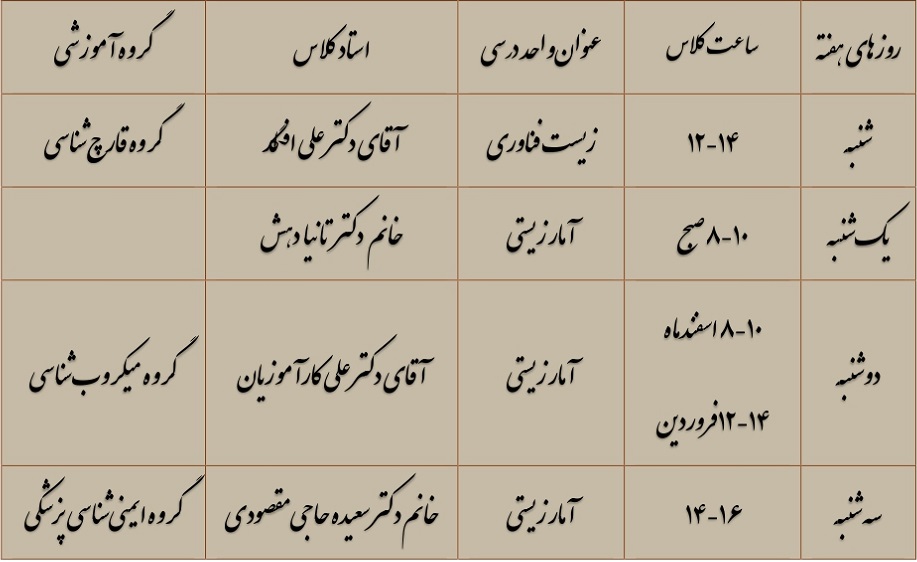 روزهای هفته ساعت کلاس عنوان واحد درسی استاد کلاس گروه آموزشی
شنبه ۱۲-۱۴ زیست فناوری آقای دکتر علی گروه قارچ شناسی
یک شنبه ۸-۱۰ صبح آمار زیستی خانم دکتر تانیا دهش
دوشنبه ۸-۱۰ اسفندماه آمار زیستی آقای دکتر علی کارآموزیان گروه میکروب شناسی
۱۲-۱۴فروردین
سه شنبه ۱۴-۱۶ آمار زیستی خانم دکتر سعیده حاجی مقصودی گروه ایمنی شناسی پزشکی